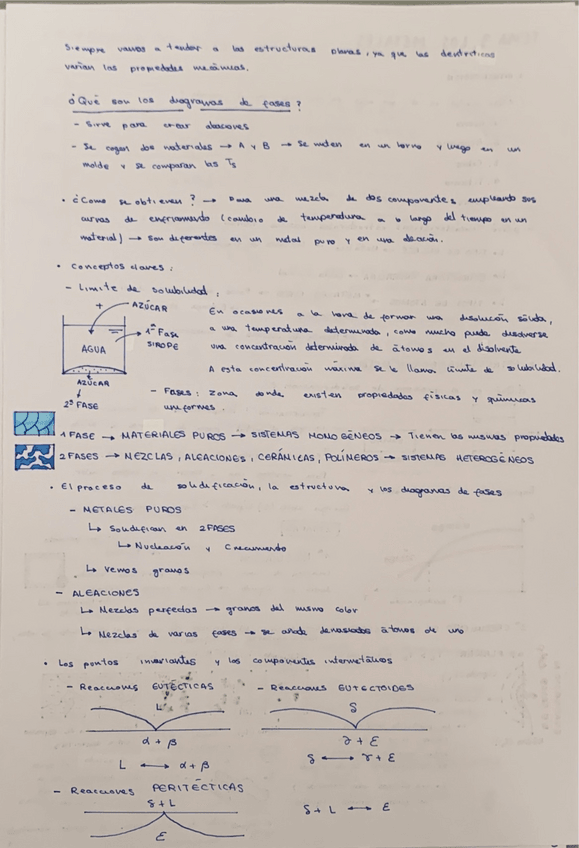 Siempre vamos a tender a las estructuras planas, ya que las dendríticas
varían las propiedades mecánicas.
¿Qué son los diagramas de fases?
- Sirve para crear aleaciones
- Se cogen dos materiales → A y B → Se meten en un horno y luego en un
molde y se comparan las Ts
• ¿Como se obtienen? → Para una mezcla de dos componentes, empleando sus
curvas de enfriamiento (cambio de temperatura a lo largo del tiempo en un
material) → son diferentes en un metal puro y en una aleación.
• Conceptos claves:
- Límite de solubilidad:
+ AZÚCAR
1ª FASE
SIROPE
AGUA
AZÚCAR
2ª FASE
En ocasiones a la hora de formar una disolución sólida,
a una temperatura determinada, como mucho puede disolverse
una concentración determinada de átomos en el disolvente
A esta concentración máxima se le llama límite de solubilidad.
- Fases: zona donde existen propiedades físicas y químicas
uniformes.
1 FASE → MATERIALES PUROS → SISTEMAS MONOGÉNEOS → Tienen las mismas propiedades
2 FASES → MEZCLAS, ALEACIONES, CERÁMICAS, POLÍMEROS → SISTEMAS HETEROGÉNEOS
• El proceso de solidificación, la estructura y los diagramas de fases
- METALES PUROS
↳ Solidifican en 2 FASES
↳ Nucleación y Crecimiento
↳ Vemos granos
- ALEACIONES
↳ Mezclas perfectas → granos del mismo color
↳ Mezclas de varias fases → se añade demasiados átomos de uno
• Los puntos invariantes y los componentes intermetálicos
- Reacciones EUTÉCTICAS
L
α + β
L ⟷ α + β
- Reacciones EUTECTOIDES
δ
γ + ε
δ ⟷ γ + ε
- Reacciones PERITÉCTICAS
δ + L
ε
δ + L ⟷ ε